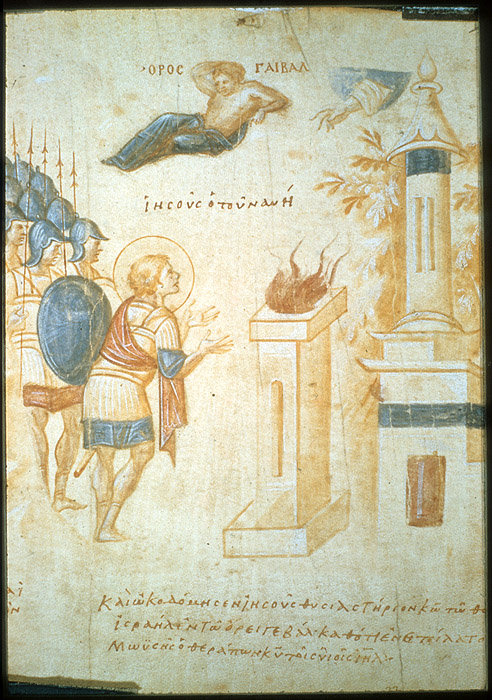 ΟΡΟΣ ΓΑΙΒΑΛ
ἰησοῦς ὁ τοῦ ναυή
Καὶ ὠκοδόμησεν ἰησοῦς θυσιαστήριον κω τῶ θω
ἰσραὴλ ἐν τῶ ὄρει γεβὰλ καθότι ἐνετείλατο
Μωϋσῆς ὁ θεράπων κυ τοῖς υἱοῖς ιηλ